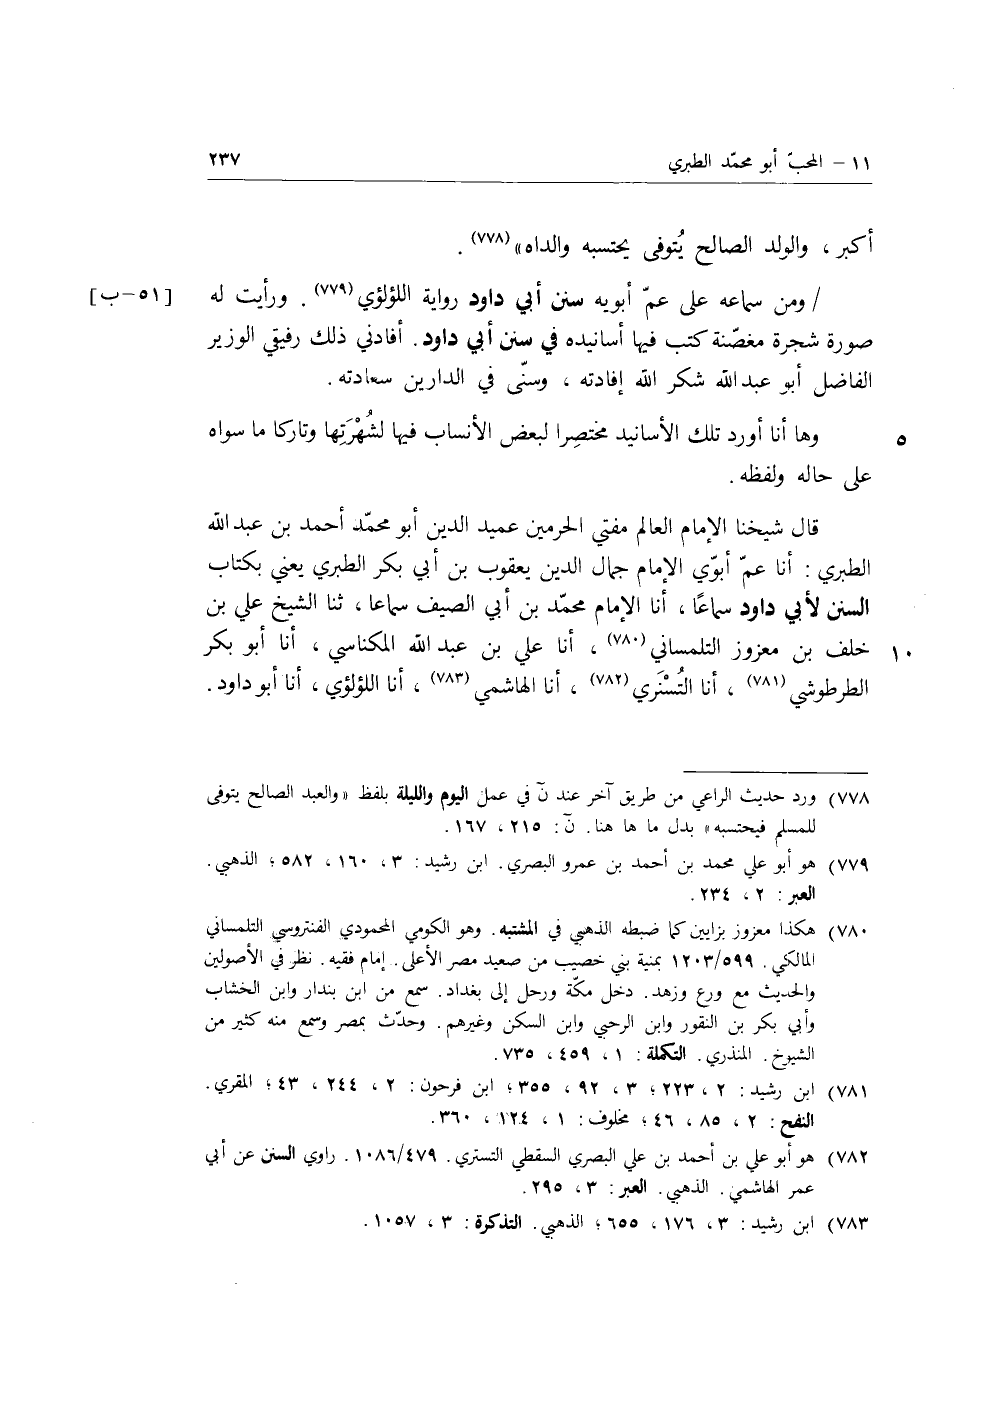 ١١ – المحبّ أبو محمّد الطبري ٢٣٧
أكبر ، والولد الصالح يُتوفى يحتسبه والداه» (٧٧٨) .
/ ومن سماعه على عمّ أبويه سنن أبي داود رواية اللؤلؤي (٧٧٩) . ورأيت له [٥١–ب]
صورة شجرة مغصّنة كتب فيها أسانيده في سنن أبي داود . أفادني ذلك رفيقي الوزير
الفاضل أبو عبد الله شكر الله إفادته ، وسنّى في الدارين سعادته .
وها أنا أورد تلك الأسانيد مختصِرا لبعض الأنساب فيها لشُهْرَتِها وتاركا ما سواه ٥
على حاله ولفظه .
قال شيخنا الإمام العالم مفتي الحرمين عميد الدين أبو محمّد أحمد بن عبد الله
الطبري : أنا عمّ أبوَّي الإمام جمال الدين يعقوب بن أبي بكر الطبري يعني بكتاب
السنن لأبي داود سماعًا ، أنا الإمام محمّد بن أبي الصيف سماعا ، ثنا الشيخ علي بن
خلف بن معزوز التلمساني (٧٨٠) ، أنا علي بن عبد الله المكناسي ، أنا أبو بكر ١٠
الطرطوشي (٧٨١) ، أنا التُسْتَري (٧٨٢) ، أنا الهاشمي (٧٨٣) ، أنا اللؤلؤي ، أنا أبو داود .
٧٧٨) ورد حديث الراعي من طريق آخر عند نَ في عمل اليوم والليلة بلفظ «والعبد الصالح يتوفى
للمسلم فيحتسبه» بدل ما ها هنا . نَ : ٢١٥ ، ١٦٧ .
٧٧٩) هو أبو علي محمد بن أحمد بن عمرو البصري . ابن رشيد : ٣ ، ١٦٠ ، ٥٨٢ ؛ الذهبي .
العبر : ٢ ، ٢٣٤ .
٧٨٠) هكذا معزوز بزايين كما ضبطه الذهبي في المشتبه . وهو الكومي المحمودي الفنتروسي التلمساني
المالكي . ١٢٠٣/٥٩٩ بمنية بني خصيب من صعيد مصر الأعلى . إمام فقيه . نظر في الأصولين
والحديث مع ورع وزهد . دخل مكّة ورحل إلى بغداد . سمع من ابن بندار وابن الخشاب
وأبي بكر بن النقور وابن الرحبي وابن السكن وغيرهم . وحدّث بمصر وسمع منه كثير من
الشيوخ . المنذري . التكملة : ١ ، ٤٥٩ ، ٧٣٥ .
٧٨١) ابن رشيد : ٢ ، ٢٢٣ ؛ ٣ ، ٩٢ ، ٣٥٥ ؛ ابن فرحون : ٢ ، ٢٤٤ ، ٤٣ ؛ المقري .
النفح : ٢ ، ٨٥ ، ٤٦ ؛ مخلوف : ١ ، ١٢٤ ، ٣٦٠ .
٧٨٢) هو أبو علي بن أحمد بن علي البصري السقطي التستري . ١٠٨٦/٤٧٩ . راوي السنن عن أبي
عمر الهاشمي . الذهبي . العبر : ٣ ، ٢٩٥ .
٧٨٣) ابن رشيد : ٣ ، ١٧٦ ، ٦٥٥ ؛ الذهبي . التذكرة : ٣ ، ١٠٥٧ .